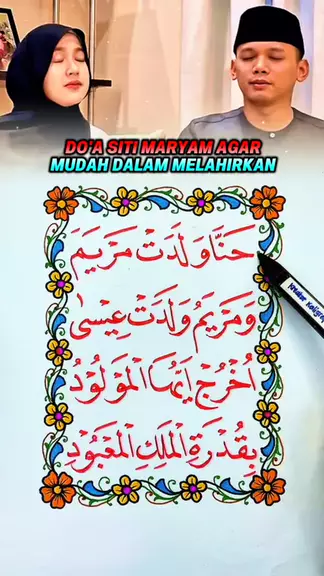 DO'A SITI MARYAM AGAR
MUDAH DALAM MELAHIRKAN
حَنَّا وَلَدَتْ مَرْيَمَ
وَمَرْيَمُ وَلَدَتْ عِيْسٰى
اُخْرُجْ اَيُّهَا الْمَوْلُوْدُ
بِقُدْرَةِ الْمَلِكِ الْمَعْبُوْدِ